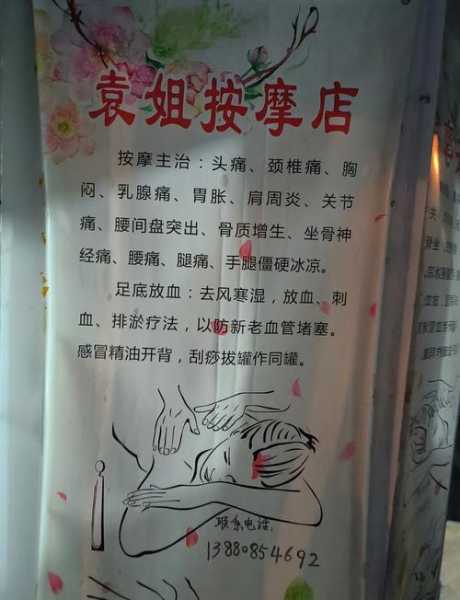 袁姐按摩店
按摩主治：头痛、颈椎痛、胸
闷、乳腺痛、胃胀、肩周炎、关节
痛、腰间盘突出、骨质增生、坐骨神
经痛、腰痛、腿痛、手腿僵硬冰凉。
足底放血：去风寒湿，放血、刺
血、排淤疗法，以防新老血管堵塞。
感冒精油开背，刮痧拔罐作同罐。
联系电话:
13880854692